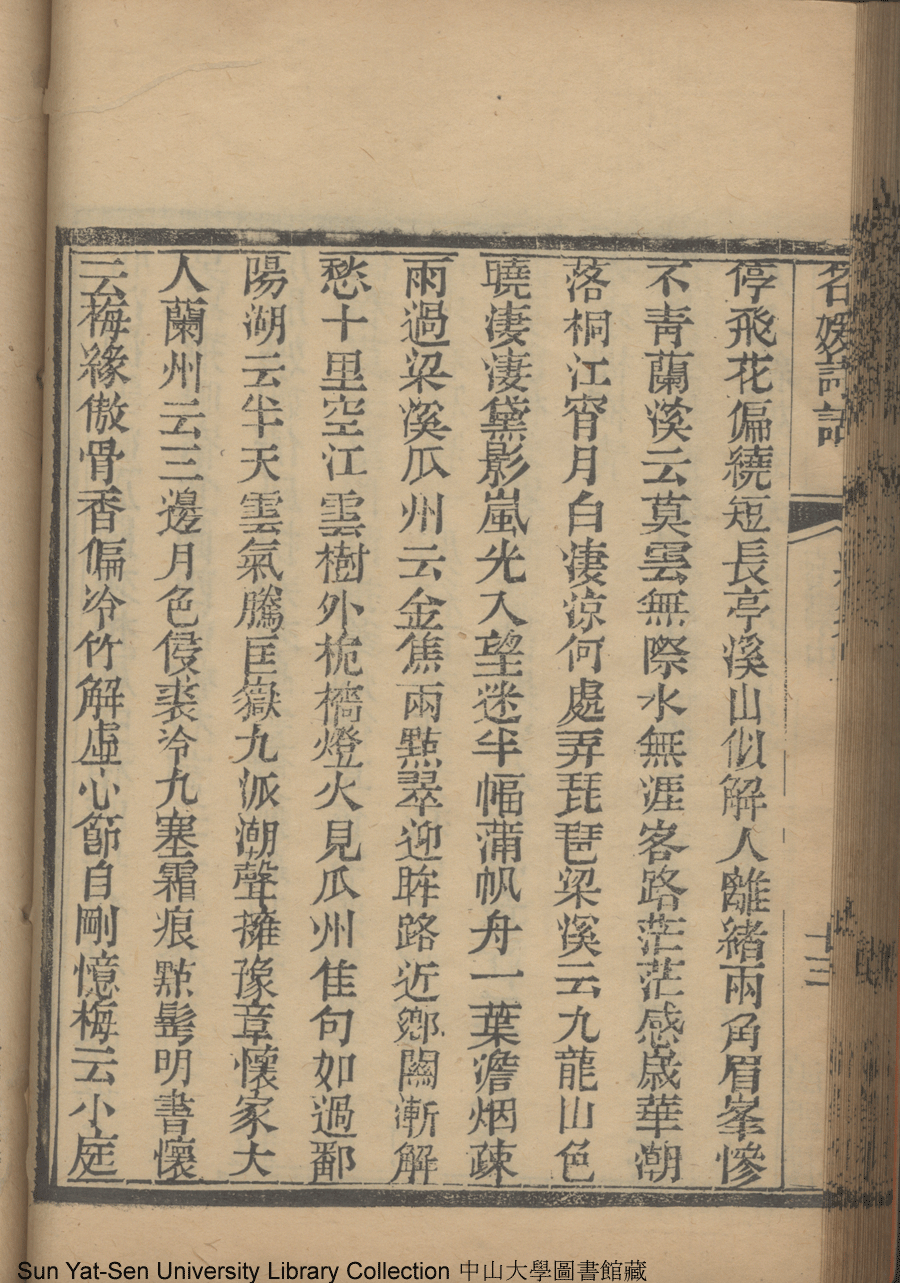 名媛詩話
十三
停飛花偏繞短長亭溪山似解人離緒兩角眉峯慘
不青蘭溪云莫雲無際水無涯客路茫茫感歲華潮
落桐江宵月白淒涼何處弄琵琶梁溪云九龍山色
曉淒淒黛影嵐光入望迷半幅蒲帆舟一葉澹烟疎
雨過梁溪瓜州云金焦兩點翠迎眸路近鄉關漸解
愁十里空江雲樹外桅檣燈火見瓜州佳句如過鄱
陽湖云半天雲氣騰匡嶽九派潮聲擁豫章懷家大
人蘭州云三邊月色侵裘冷九塞霜痕點鬂明書懷
云梅緣傲骨香偏冷竹解虛心節自剛憶梅云小庭
Sun Yat-Sen University Library Collection 中山大學圖書館藏